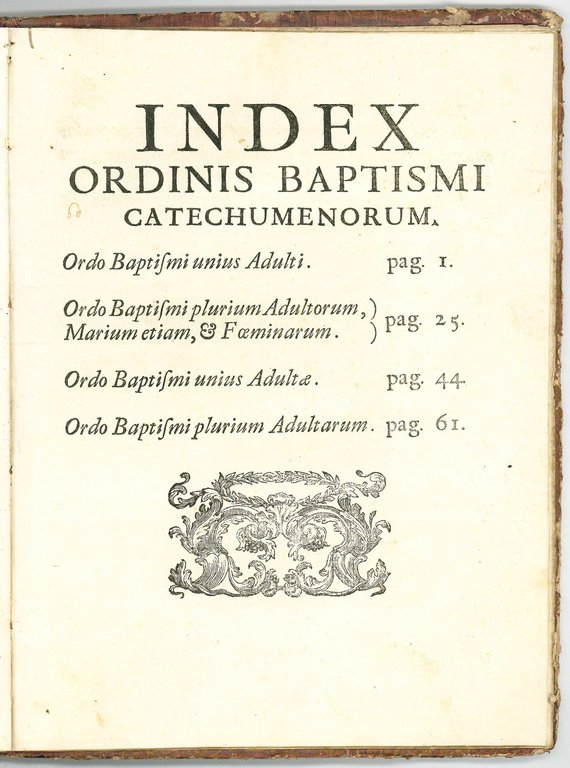 INDEX
ORDINIS BAPTISMI
CATECHUMENORUM.
Ordo Baptiſmi unius Adulti. pag. 1.
Ordo Baptiſmi plurium Adultorum,)
Marium etiam, & Fœminarum. ) pag. 25.
Ordo Baptiſmi unius Adultæ. pag. 44.
Ordo Baptiſmi plurium Adultarum. pag. 61.